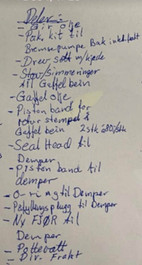 Deler:
olje
- Pak. kit til
Bremsepumpe Bak inkl. bolt
- Drev sett m/kjede
- Støv/Simmeringer
til Gaffel bein
- Gaffel olje
- Piston band for
stempel i
Gaffel bein 2stk
- Seal Head til
Demper
- pisten band til
demper
- O-ring til Demper
- til Demper
- Ny FJØR til
Demper
- Div. Frakt